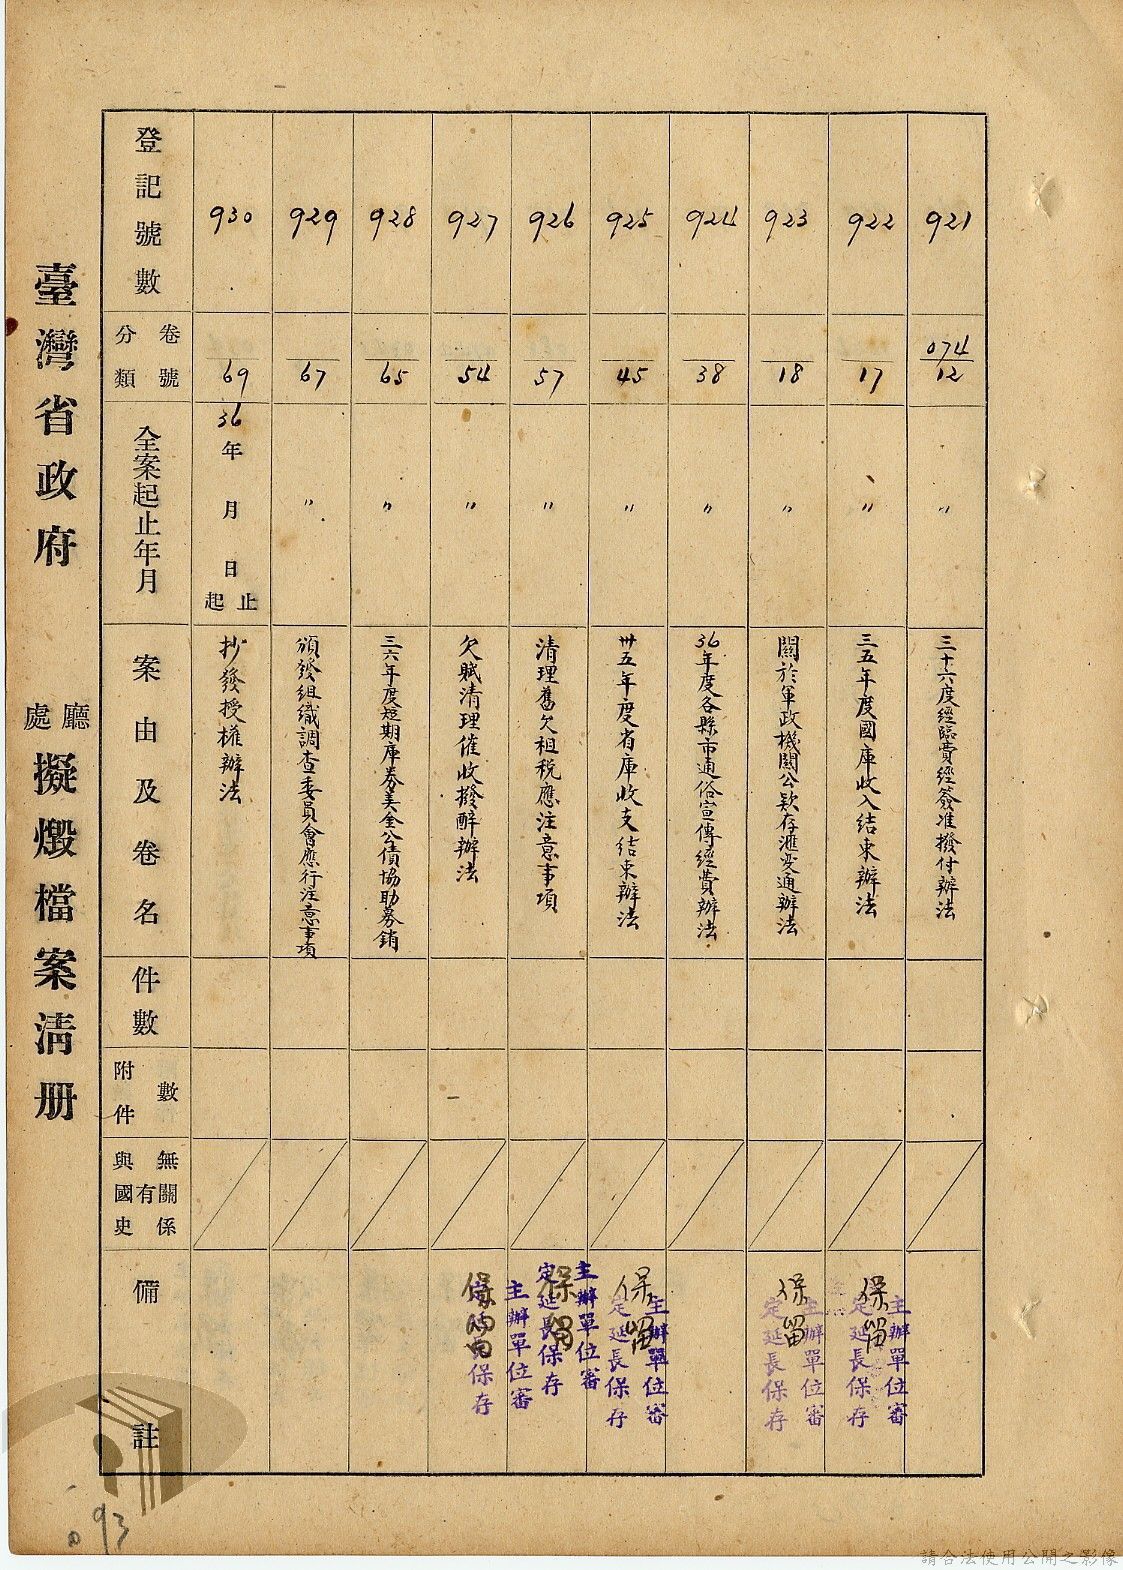 臺灣省政府 廳處 擬燬檔案清册
登記號數
卷號分類
全案起止年月
案由及卷名
件數
附件數
與國史有無關係
備註
921
074/12
〃
三十六度經臨費經簽准撥付辦法
922
17
〃
三五年度國庫收入結束辦法
保留
主辦單位審定延長保存
923
18
〃
關於軍政機關公款存滙变通辦法
保留
主辦單位審定延長保存
924
38
〃
36年度各縣市通俗宣傳經費辦法
925
45
〃
卅五年度省庫收支結束辦法
保留
主辦單位審定延長保存
926
57
〃
清理舊欠租稅應注意事項
保留
主辦單位審定延長保存
927
54
〃
欠賦清理催收撥酧辦法
保留
主辦單位審定延長保存
928
65
〃
三六年度短期庫券美金公債協助募銷
929
67
〃
頒發組織調查委員會應行注意事項
930
69
36年 月 日起止
抄發授權辦法
93
請合法使用公開之影像